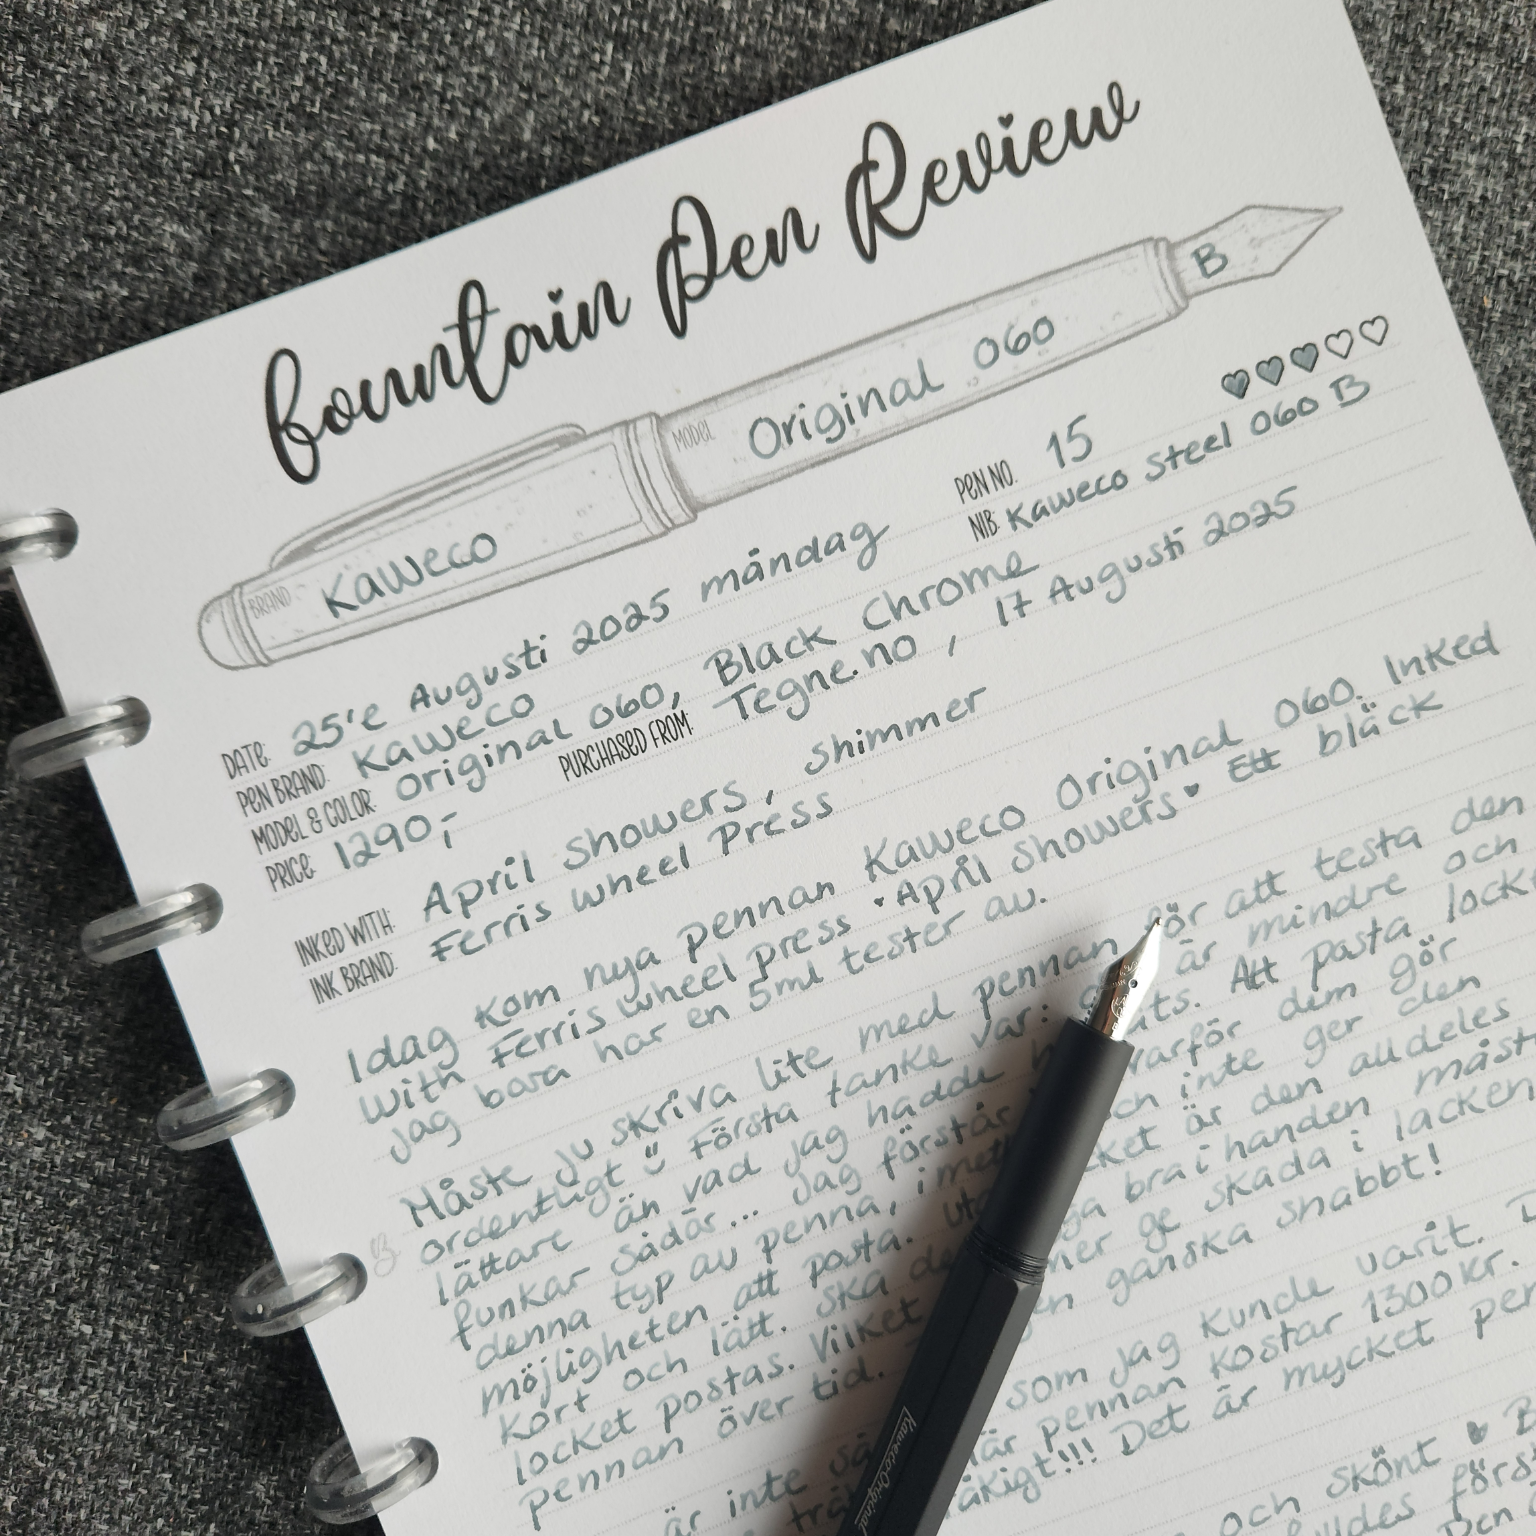 Fountain Pen Review
BRAND Kaweco MODEL Original 060 B
PEN NO. 15
DATE: 25'e Augusti 2025 måndag NIB: Kaweco steel 060 B
PEN BRAND: Kaweco
MODEL & COLOR: Original 060, Black Chrome
PRICE: 1290,- PURCHASED FROM: Tegne.no, 17 Augusti 2025
INKED WITH: April showers, shimmer
INK BRAND: Ferris wheel Press
Idag kom nya pennan Kaweco Original 060. Inked
with Ferris wheel press · April showers · Ett bläck
jag bara har en 5ml tester av.
Måste ju skriva lite med pennan för att testa den
ordentligt Första tanke var: är mindre och
lättare än vad jag hadde Att posta
funkar sådär... Jag förstår varför dem gör
denna typ av penna, och inte ger den
möjligheten att posta. är den alldeles
kort och lätt. ska bra i handen
locket postas. Vilket ge skada i lacken
pennan över tid. ganska snabbt!
är inte som jag kunde varit.
pennan kostar 1300kr.
Det är mycket
och skönt
Kaweco Original